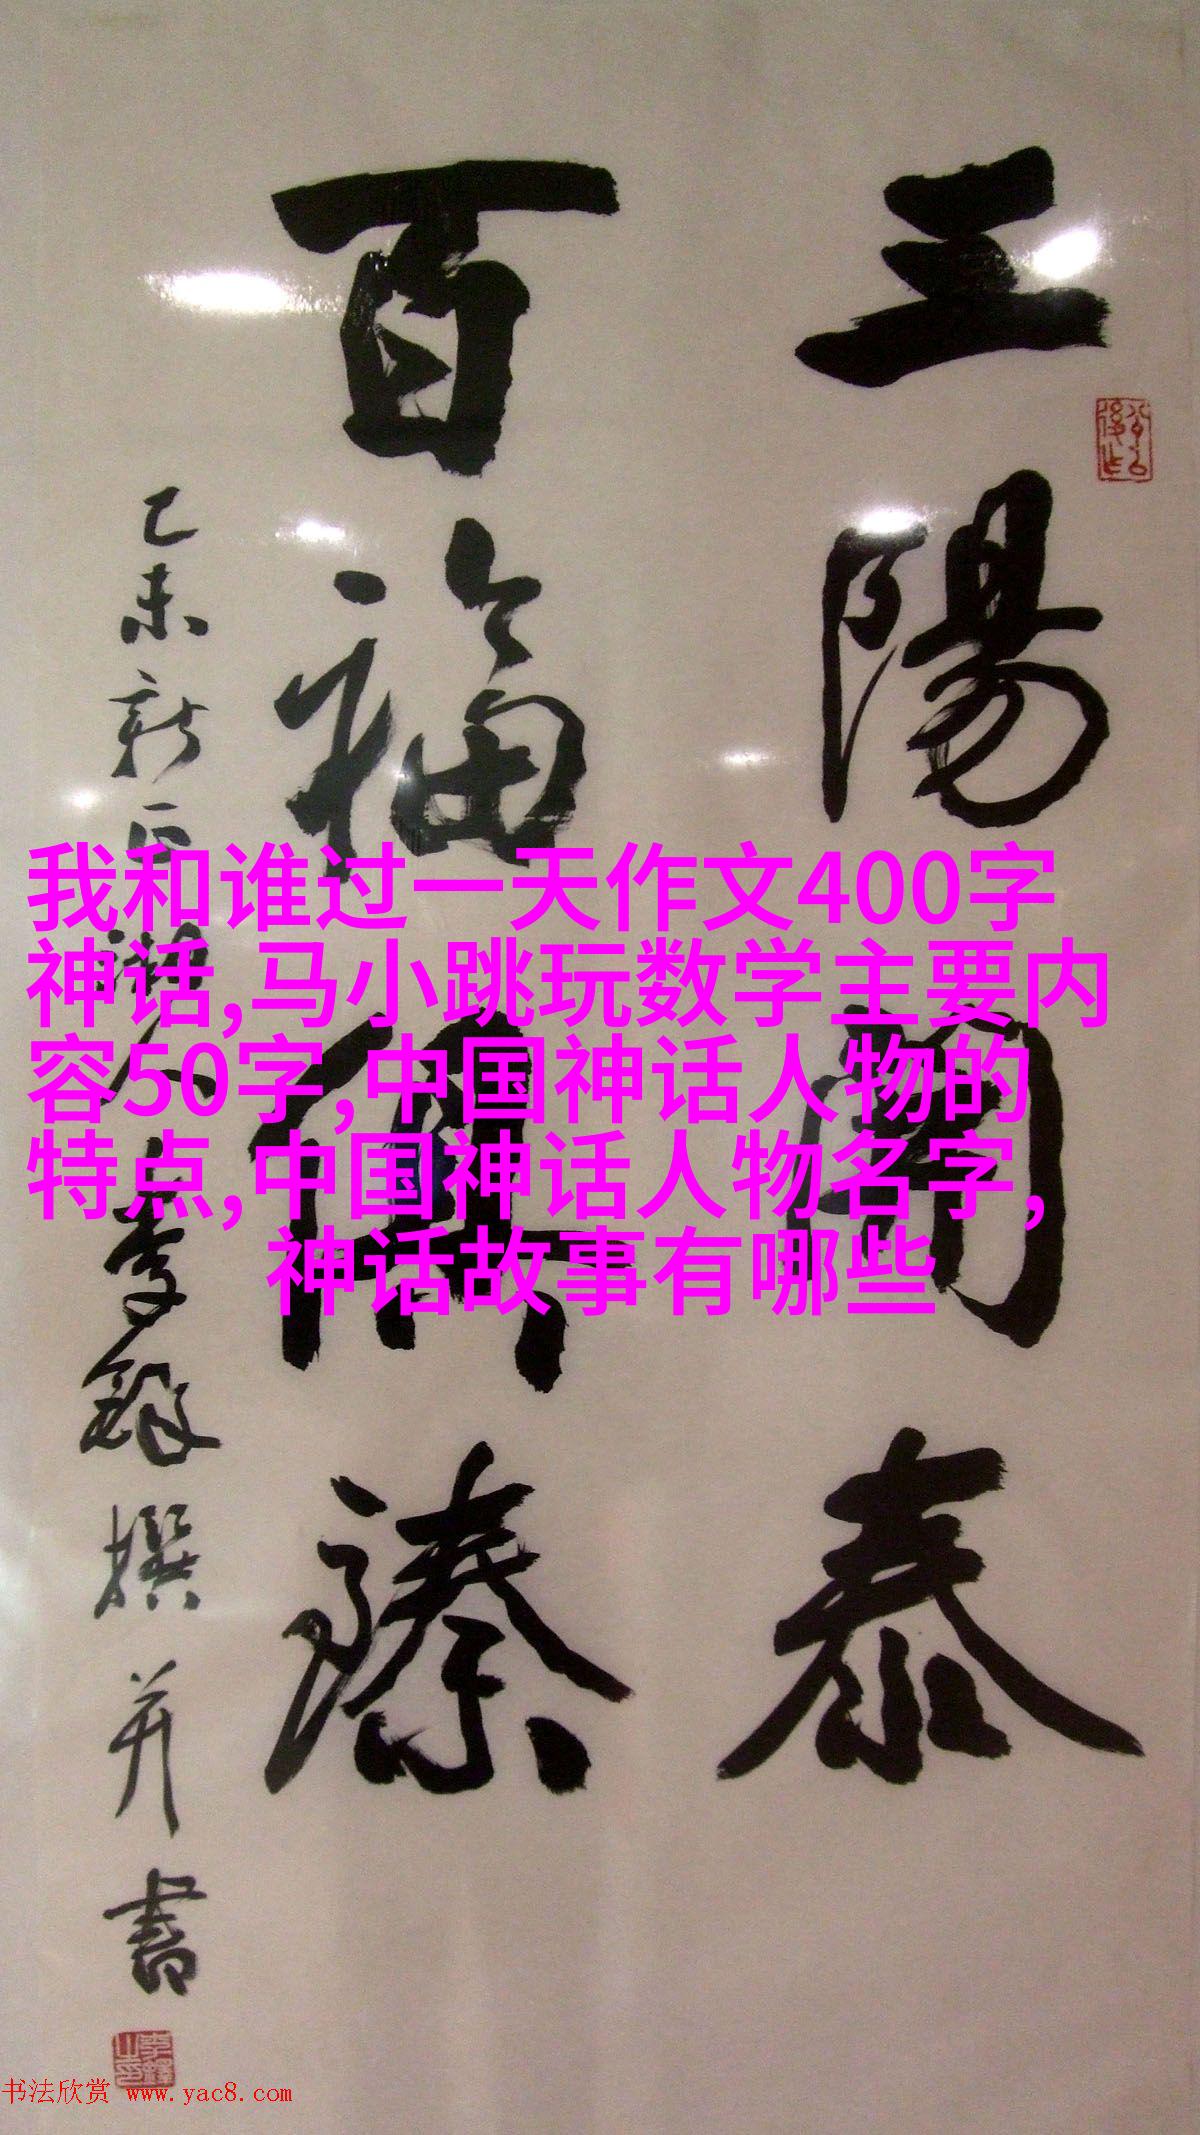 三陽開泰
百福俱臻
乙未新正湖人李鐸撰并書
我和谁过一天作文400字
神话,马小跳玩数学主要内
容50字,中国神话人物的
特点,中国神话人物名字,
神话故事有哪些
书法欣赏 www.yac8.com